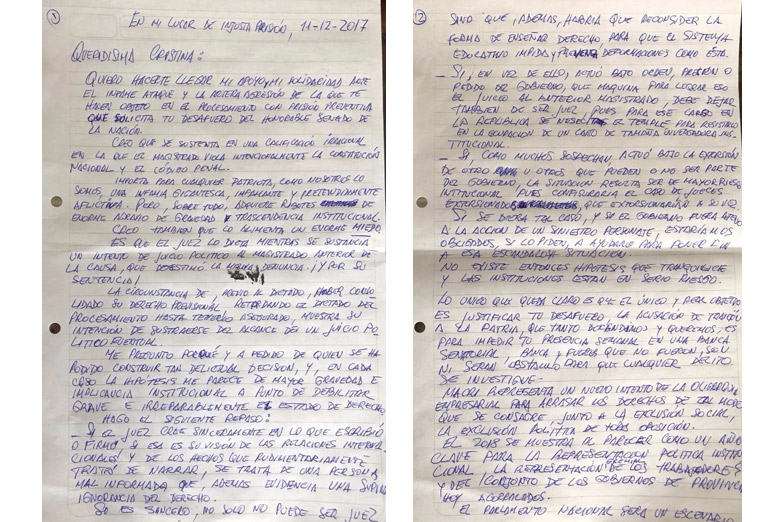 1
EN MI LUGAR DE INJUSTA PRISIÓN, 11-12-2017
QUERIDISIMA CRISTINA:
QUIERO HACERTE LLEGAR MI APOYO, MI SOLIDARIDAD ANTE
EL INFAME ATAQUE Y LA ARTERA AGRESIÓN DE LA QUE TE
HACEN OBJETO EN EL PROCESAMIENTO CON PRISIÓN PREVENTIVA
QUE SOLICITA TU DESAFUERO DEL HONORABLE SENADO DE
LA NACIÓN.
CREO QUE SE SUSTENTA EN UNA CALIFICACIÓN IRRACIONAL
EN LA QUE EL MAGISTRADO VIOLA INTENCIONALMENTE LA CONSTITUCIÓN
NACIONAL Y EL CÓDIGO PENAL.
IMPORTA PARA CUALQUIER PATRIOTA, COMO NOSOTROS LO
SOMOS, UNA INFAMIA GIGANTESCA, INFAMANTE Y PRETENDIDAMENTE
AFLICTIVA. PERO, SOBRE TODO, ADQUIERE RIBETES DE
ENORME AGRAVIO DE GRAVEDAD Y TRASCENDENCIA INSTITUCIONAL.
CREO TAMBIEN QUE LO ALIMENTA UN ENORME MIEDO.
ES QUE EL JUEZ LO DICTA MIENTRAS SE SUSTANCIA
UN INTENTO DE JUICIO POLITICO AL MAGISTRADO ANTERIOR DE
LA CAUSA, QUE DESESTIMÓ LA MISMA DENUNCIA. ¡Y POR SU
SENTENCIA!
LA CIRCUNSTANCIA DE, PREVIO AL DICTADO, HABER CONSO-
LIDADO SU DERECHO PREVISIONAL, RETARDANDO EL DICTADO DEL
PROCESAMIENTO HASTA TENERLO ASEGURADO, MUESTRA SU
INTENCIÓN DE SUSTRAERSE DEL ALCANCE DE UN JUICIO PO-
LITICO EVENTUAL.
ME PREGUNTO PORQUÉ Y A PEDIDO DE QUIEN SE HA
PODIDO CONSTRUIR TAN DELICTUAL DECISIÓN, Y, EN CADA
CASO LA HIPÓTESIS ME PARECE DE MAYOR GRAVEDAD E
IMPLICANCIA INSTITUCIONAL A PUNTO DE DEBILITAR
GRAVE E IRREPARABLEMENTE EL ESTADO DE DERECHO.
HAGO EL SIGUIENTE REPASO:
- SI EL JUEZ CREE SINCERAMENTE EN LO QUE ESCRIBIÓ
O FIRMÓ Y SI ESA ES SU VISIÓN DE LAS RELACIONES INTERNA-
CIONALES Y DE LOS HECHOS QUE RUDIMENTARIAMENTE
TRATÓ DE NARRAR, SE TRATA DE UNA PERSONA
MAL INFORMADA QUE, ADEMAS EVIDENCIA UNA SUPINA
IGNORANCIA DEL DERECHO.
SI ES SINCERO, NO SOLO NO PUEDE SER JUEZ
2
SINO QUE, ADEMAS, HABRIA QUE RECONSIDERAR LA
FORMA DE ENSEÑAR DERECHO PARA QUE EL SISTEMA
EDUCATIVO IMPIDA Y PREVENGA DEFORMACIONES COMO ÉSTA.
- SI, EN VEZ DE ELLO, ACTUÓ BAJO ORDEN, PRESIÓN O
PEDIDO DEL GOBIERNO, QUE MAQUINA PARA LOGRAR ESO
EL JUICIO AL ANTERIOR MAGISTRADO, DEBE DEJAR
TAMBIEN DE SER JUEZ PUES PARA ESE CARGO EN
LA REPUBLICA SE NECESITA EL TEMPLE PARA RESISTIRLO
EN LA EQUIPARACIÓN DE UN COSTO DE TAMAÑA ENVERGADURA INS-
TITUCIONAL.
- SI, COMO MUCHOS SOSPECHAN, ACTUÓ BAJO LA EXTORSIÓN
DE OTRO U OTROS QUE PUEDEN O NO SER PARTE
DEL GOBIERNO, LA SITUACIÓN RESULTA SER DE MAYOR RIESGO
INSTITUCIONAL PUES CONFIGURARIA EL CASO DE JUECES
EXTORSIONADOS QUE EXTORSIONARÍAN A SU VEZ.
SI SE DIERA TAL CASO, Y SI EL GOBIERNO FUERA AJENO
A LA ACCIÓN DE UN SINIESTRO PERSONAJE, ESTARÍAMOS
OBLIGADOS, SI LO PIDEN, A AYUDARLO PARA PONER FIN
A ESA ESCANDALOSA SITUACIÓN.
NO EXISTE ENTONCES HIPÓTESIS QUE TRANQUILICE
Y LAS INSTITUCIONES ESTAN EN SERIO RIESGO.
LO UNICO QUE QUEDA CLARO ES QUE EL ÚNICO Y REAL OBJETIVO
ES JUSTIFICAR TU DESAFUERO, LA ACUSACIÓN DE TRAICIÓN
A LA PATRIA, QUE TANTO DEFENDIMOS Y QUEREMOS, ES
PARA IMPEDIR TU PRESENCIA SEMANAL EN UNA BANCA
SENATORIAL, BANCA Y FUEROS QUE NO FUERON, SON
NI SERAN OBSTACULO PARA QUE CUALQUIER DELITO
SE INVESTIGUE.-
MACRI REPRESENTA UN NUEVO INTENTO DE LA OLIGARQUIA
EMPRESARIAL PARA ARRASAR LOS DERECHOS DE TAL MODO
QUE SE CONSAGRE, JUNTO A LA EXCLUSIÓN SOCIAL,
LA EXCLUSIÓN POLÍTICA DE TODA OPOSICIÓN.
EL 2018 SE MUESTRA AL PARECER COMO UN AÑO
CLAVE PARA LA REPRESENTACIÓN POLITICA INSTITU-
CIONAL, LA REPRESENTACIÓN DE LOS TRABAJADORES
Y DEL CONJUNTO DE LOS GOBIERNOS DE PROVINCIA
HOY ACORRALADOS.
EL PARLAMENTO NACIONAL SERÁ UN ESCENARIO